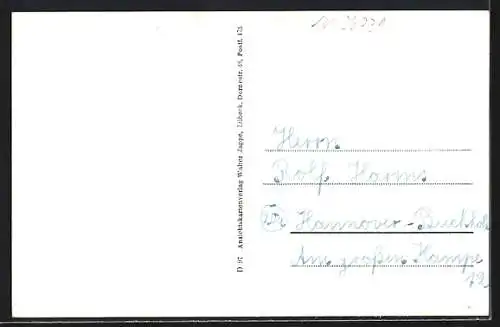 D 97 Ansichtskartenverlag Walter Jappe, Lübeck, Dornestr. 46, Postf. 475
Herrn
Rolf Harms
Hannover-Buchholz
Am großen Kampe
12